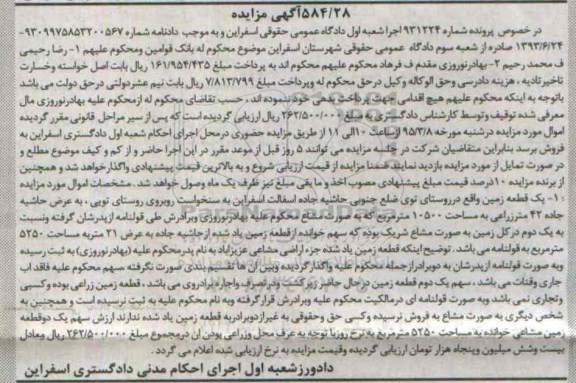 ۵۸۴/۲۸آگهی مزایده
در خصوص پرونده شماره ۹۳۱۲۲۴ اجرا شعبه اول دادگاه عمومی حقوقی اسفراین و به موجب دادنامه شماره ۹۳۰۹۹۷۵۸۵۳۲۰۰۵۶۷-
۱۳۹۳/۶/۲۴ صادره از شعبه سوم دادگاه عمومی حقوقی شهرستان اسفراین موضوع محکوم له بانک قوامین ومحکوم علیهم ۱- رضا رحیمی
ف محمد رحیم ۲- بهادرنوروزی مقدم ف فرهاد محکوم علیهم محکوم اند به پرداخت مبلغ ۱۶۱/۹۵۴/۴۳۵ ریال بابت اصل خواسته وخسارت
تاخیر تادیه ، هزینه دادرسی وحق الوکاله وکیل درحق محکوم له وپرداخت مبلغ ۷/۸۱۳/۷۹۹ ریال بابت نیم عشردولتی درحق دولت می باشد
باتوجه به اینکه محکوم علیهم هیچ اقدامی جهت پرداخت بدهی خود ننموده اند ، حسب تقاضای محکوم له ازمحکوم علیه بهادرنوروزی مال
معرفی شده توقیف وتوسط کارشناس دادگستری به مبلغ ۲۶۲/۵۰۰/۰۰۰ ریال ارزیابی گردیده است که پس از سیر مراحل قانونی مقرر گردیده
اموال مورد مزایده درشنبه مورخه ۹۵/۳/۸ ازساعت ۱۰الی ۱۱ از طریق مزایده حضوری درمحل اجرای احکام شعبه اول دادگستری اسفراین به
فروش برسد بنابراین متقاضیان شرکت در جلسه مزایده می توانند ۵ روز قبل از موعد مقرر در این اجرا حاضر و از کم و کیف موضوع مطلع و
در صورت تمایل از مورد مزایده بازدید نمایند ضمنا مزایده از قیمت ارزیابی شروع و به بالاترین قیمت پیشنهادی واگذارخواهد شد و همچنین
از برنده مزایده ۱۰درصد قیمت مبلغ پیشنهادی مصوب اخذ و ما بقی مبلغ نیز ظرف یک ماه وصول خواهد شد . مشخصات اموال مورد مزایده
: ۱- یک قطعه زمین واقع درروستای توی ضلع جنوبی حاشیه جاده اسفالت اسفراین به سنخواست روبروی روستای تویی ، به عرض حاشیه
جاده ۴۲ مترزراعی به مساحت ۱۰۵۰۰ مترمربع که به صورت مشاع محکوم علیه بهادرنوروزی وبرادرش طی قولنامه ازپدرشان گرفته ونسبت
به یک دوم درکل زمین به صورت مشاع شریک بوده که سهم خوانده ازقطعه زمین یاد شده ازحاشیه جاده به عرض ۲۱ متربه مساحت ۵۲۵۰
مترمربع به قولنامه می باشد . توضیح اینکه قطعه زمین یاد شده جزء اراضی مشاعی عزیزآباد به نام پدرمحکوم علیه (بهادرنوروزی) به ثبت رسیده
وبه صورت قولنامه ازپدرشان به دوبرادرازجمله محکوم علیه واگذارگردیده وبین آن ها تقسیم بندی صورت نگرفته ،سهم محکوم علیه فاقد آب
جاری وقنات می باشد ، سهم یک دوم قطعه زمین درحال حاضر زیرکشت ودرتصرف واجاره برادروی می باشد ، قطعه زمین زراعی بوده وکسبی
وتجاری نمی باشد وبه صورت قولنامه ای درمالکیت محکوم علیه وبرادرش قرارگرفته وبه نام محکوم علیه به ثبت نرسیده است و همچنین به
شخص دیگری به صورت مشاع به فروش نرسیده وکسی حق وحقوقی به غیرازدوبرادربه قطعه زمین یاد شده ندارند ارزش سهم یک دوقطعه
زمین مشاعی خوانده به مساحت ۵۲۵۰ مترمربع به نرخ روزبا توجه به عرف محل وزراعی بودن آن درمجموع مبلغ ۲۶۲/۵۰۰/۰۰۰ ریال ومعادل
بیست وشش میلیون وپنجاه هزار تومان ارزیابی گردیده وقیمت مزایده به نرخ ارزیابی شده اعلام می گردد .
دادورزشعبه اول اجرای احکام مدنی دادگستری اسفراین